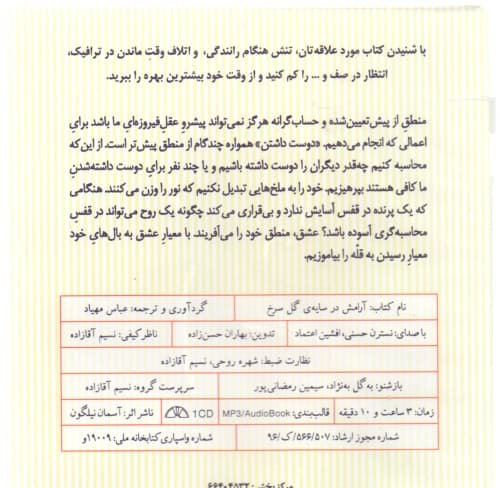 با شنیدن کتاب مورد علاقه‌تان، تنش هنگام رانندگی، و اتلاف وقتِ ماندن در ترافیک،
انتظار در صف و ... را کم کنید و از وقت خود بیشترین بهره را ببرید.
منطقِ از پیش‌تعیین‌شده و حساب‌گرانه هرگز نمی‌تواند پیشروِ عقلِ فیروزه‌ای ما باشد برای
اعمالی که انجام می‌دهیم. «دوست داشتن» همواره چندگام از منطق پیش‌تر است. از این‌که
محاسبه کنیم چه‌قدر دیگران را دوست داشته باشیم و یا چند نفر برای دوست داشته‌شدنِ
ما کافی هستند بپرهیزیم. خود را به ملخ‌هایی تبدیل نکنیم که نور را وزن می‌کنند. هنگامی
که یک پرنده در قفس آسایش ندارد و بی‌قراری می‌کند چگونه یک روح می‌تواند در قفسِ
محاسبه‌گری آسوده باشد؟ عشق، منطق خود را می‌آفریند. با معیارِ عشق به بال‌هایِ خود
معیارِ رسیدن به قلّه را بیاموزیم.
نام کتاب: آرامش در سایه‌ی گل سرخ گردآوری و ترجمه: عباس مهیاد
با صدای: نسترن حسنی، افشین اعتماد تدوین: بهاران حسن‌زاده ناظر کیفی: نسیم آقازاده
نظارت ضبط: شهره روحی، نسیم آقازاده
بازشنو: به‌گل به‌نژاد، سیمین رمضانی‌پور سرپرست گروه: نسیم آقازاده
زمان: ۳ ساعت و ۱۰ دقیقه قالب‌بندی: MP3/AudioBook 1CD ناشر اثر: آسمان نیلگون
شماره مجوز ارشاد: ۵۶۶/۵۰۷/ک/۹۶ شماره واسپاری کتابخانه ملی: ۱۹۰۰۹و
مرکز پخش: ۶۶۴۰۴۵۳۲